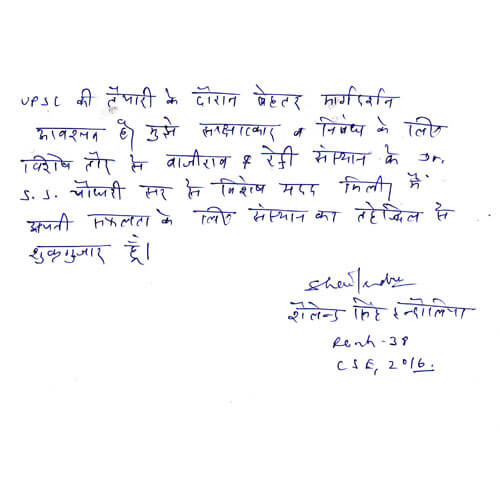 UPSC की तैयारी के दौरान बेहतर मार्गदर्शन
आवश्यक है। मुझे साक्षात्कार व निबंध के लिए
विशेष तौर से वाजीराव & रेड्डी संस्थान के Dr.
S. S. चौधरी सर से विशेष मदद मिली। मैं
अपनी सफलता के लिए संस्थान का तहेदिल से
शुक्रगुजार हूँ।
शैलेन्द्र सिंह इन्दौलिया
Rank-38
CSE, 2016.